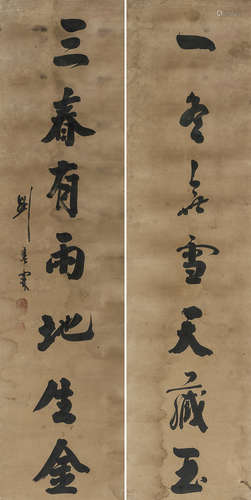 一冬無雪天藏玉
三春有雨地生金
劉春霖